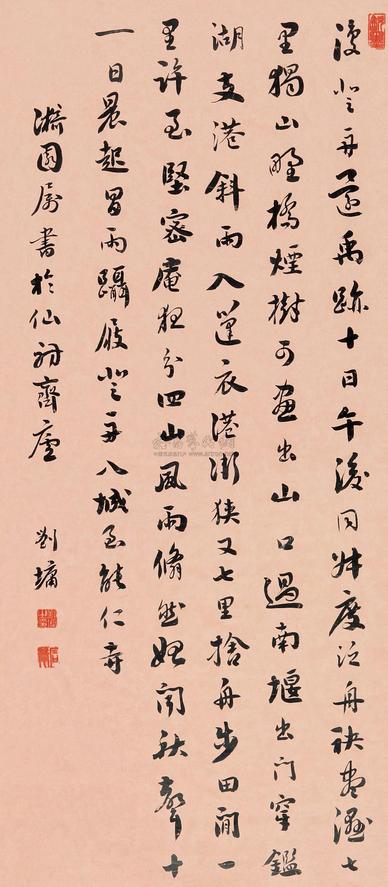 後登舟還禹跡十日午後同妹度泛舟袂盡濕七
里獨山野橋煙樹可畫出山口過南堰出門窜鑑
湖支港斜雨入篷衣港漸狹又七里捨舟步田間一
里許至堅密庵夜分四山風雨翛然如聞秋聲十
一日晨起冒雨躡屐登舟入城至能仁寺
漪園屬書於仙舫齋廬
劉墉